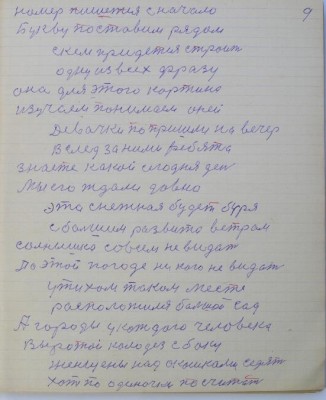 номер пишется с начало
9
Букву поставим рядом
с кем придется строит
одну из всех фразу
она для этого картина
изучаем понимаем оней
Девочки по пришли на вечер
Вслед за ними ребята
знаете какой сегодня ден
Мы его ждали давно
Это снежная будет буря
с большим развито ветром
солнышко совсем не видат
По этой погоде ни кого не видат
у тихом таком месте
расположила большой сад
А городы у каждого человека
Вырытой колодез с боку
женсцены над окошками сидят
Хотя по одиночки посчитат